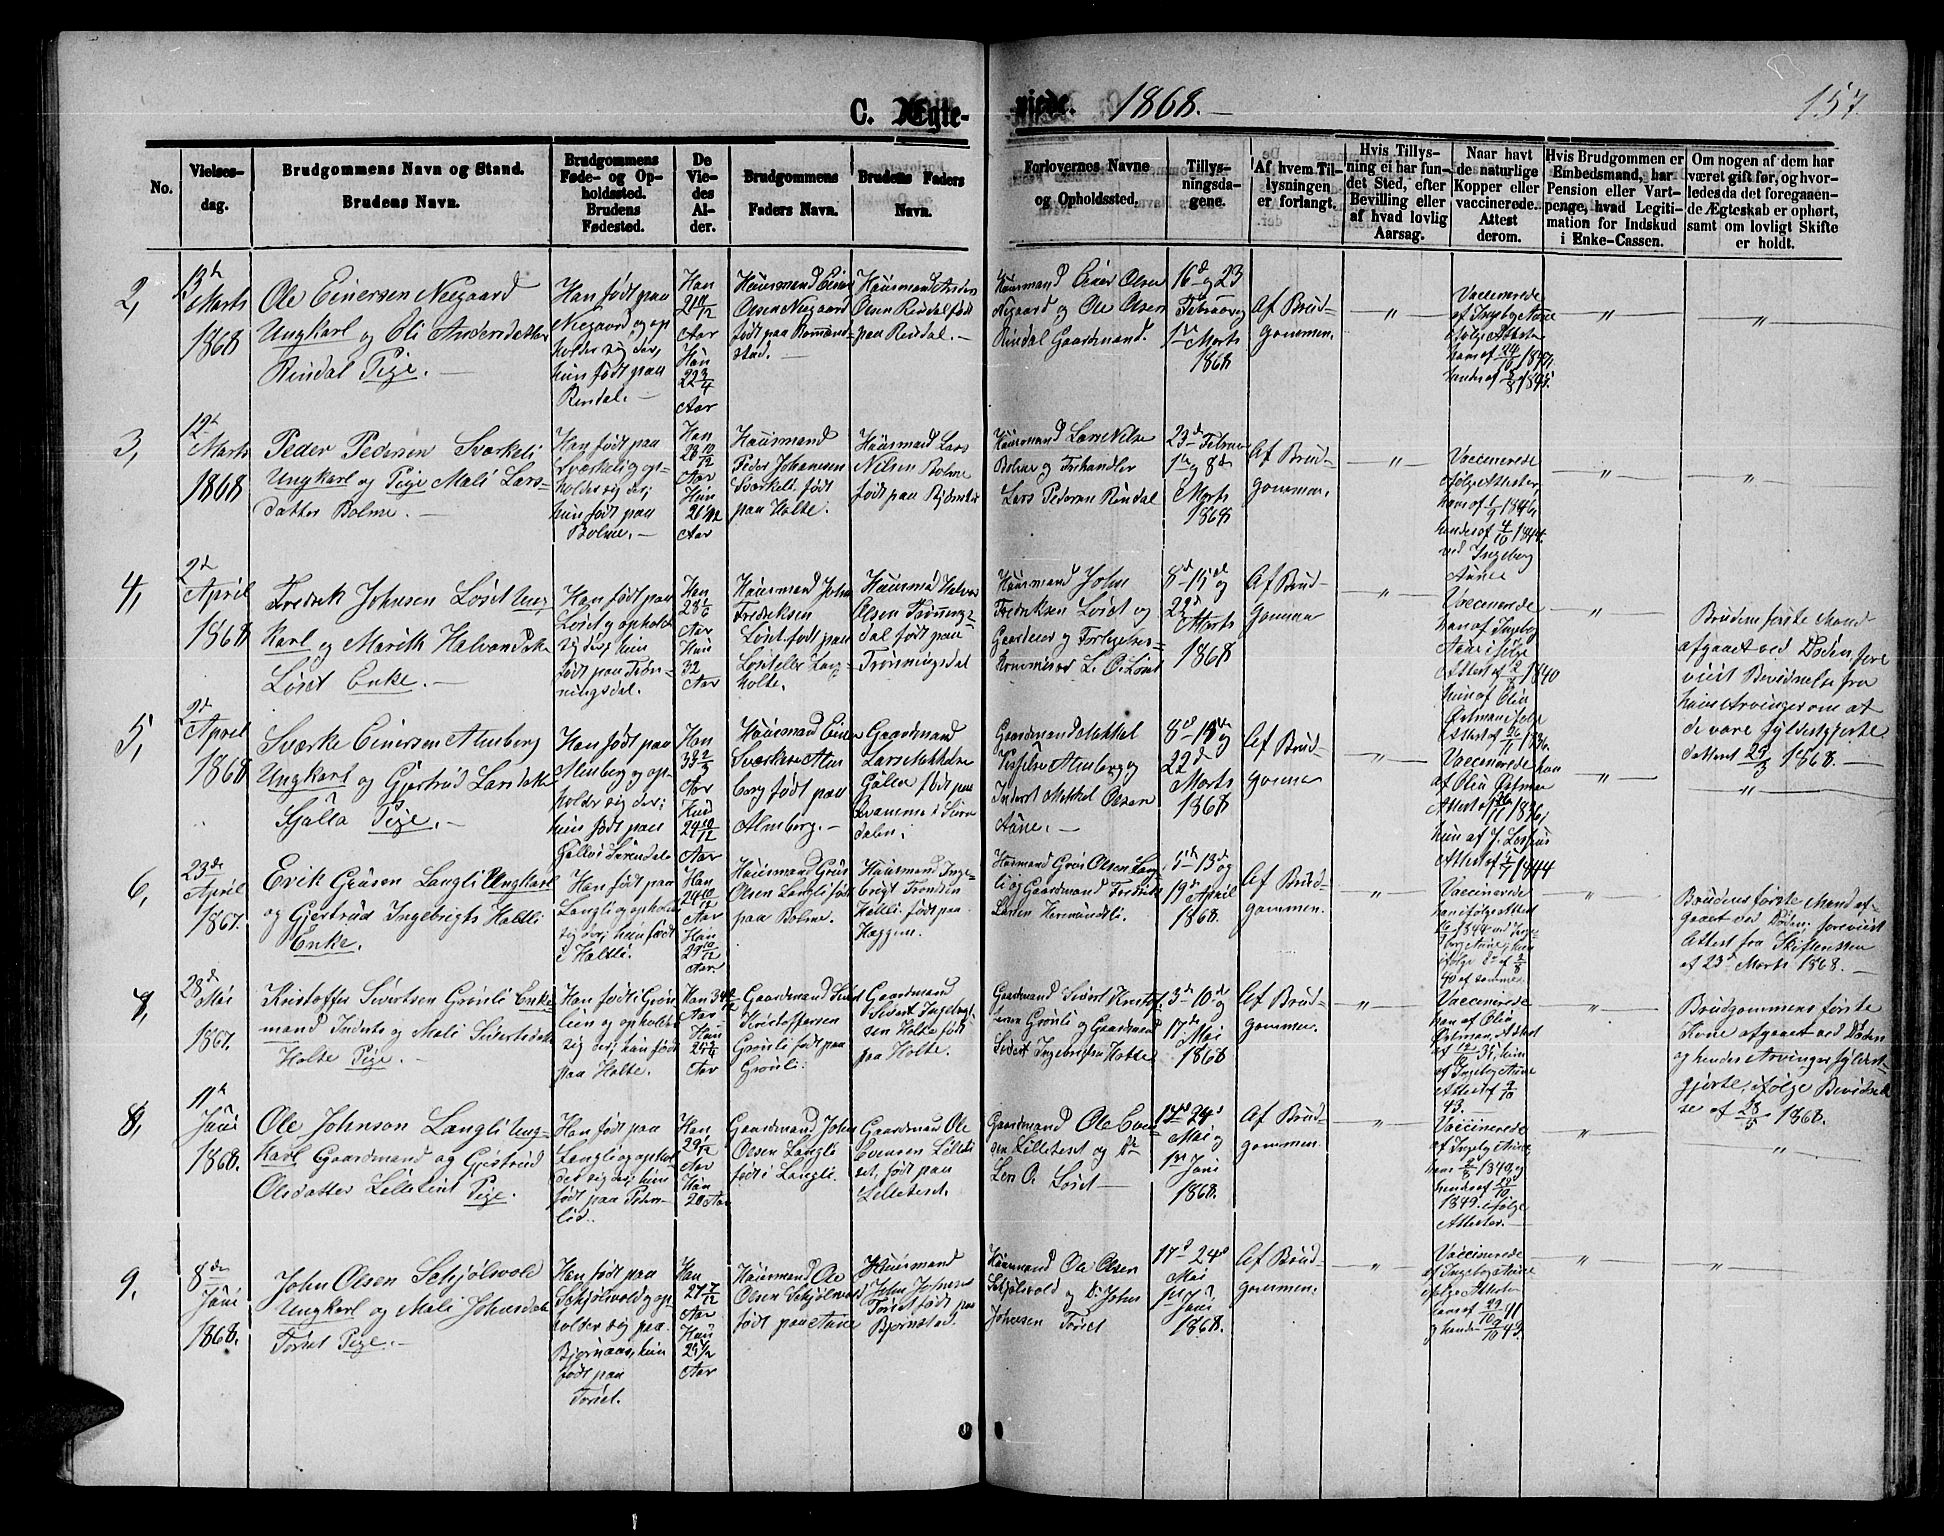 C. Ægte-
viede. 1868.
157.
No.
Vielses-
dag.
Brudgommens Navn og Stand.
Brudens Navn.
Brudgommens
Føde- og Op-
holdssted.
Brudens
Fødested.
De
Vie-
des
Al-
der.
Brudgommens
Faders Navn.
Brudens Faders
Navn.
Forlovernes Navne
og Opholdssted.
Tillys-
ningsda-
gene.
Af hvem Til-
lysningen
er forlangt.
Hvis Tillys-
ning ei har fun-
det Sted, efter
Bevilling eller
af hvad lovlig
Aarsag.
Naar havt
de naturlige
Kopper eller
vaccinerede.
Attest
derom.
Hvis Brudgommen er
Embedsmand, har
Pension eller Vart-
penge, hvad Legiti-
mation for Indskud
i Enke-Cassen.
Om nogen af dem har
været gift før, og hvor-
ledes da det foregaaen-
de Ægteskab er ophørt,
samt om lovligt Skifte
er holdt.
2,
Marts
1868
Ole Einersen Neegaard
Ungkarl og Oli Andersdatter
Rindal Pige. —
Han født paa
Neegaard og op
holder sig der,
hun født paa
Rindal. —
Han
Aar
Hun
22 3/4
Aar
Huusmand Einer
Olsen Neegaard
født paa Romund-
stad. —
Huusmand Anders
Olsen Rindal født
paa Rindal. —
Huusmand Einer Olsen
Negaard og Ole Olsen
Rindal Gaardmand.
16d og 23
Februar og
1ste Marts
1868
Af Brud-
gommen.
— " —
Vaccinerede
af Ingebg Aune
ifølge Attester
— " —
— " —
3,
12te
Marts
1868
Peder Pedersen Sværkeli
Ungkarl og Pige Mali Lars-
datter Bolme. —
Han født paa
Sværkeli og op-
holder sig der;
hun født paa
Bolme. —
Han
28 10/12
Aar
Hun
Aar
Huusmand
Peder Johansen
Sværkeli født
paa Holte.
Huusmand Lars
Nilsen Bolme
født paa Bjørnstad
Huusmand Lars Nilsen
Bolme og Frihandler
Lars Pedersen Rindal
23d Februar
1ste og 8d
Marts
1868
Af Brud-
gommen.
— " —
Vaccinerede
ifølge Attester
ved Ingeborg
Aune
— " —
— " —
4,
2d
April
1868
Fredrik Johnsen Løset Ung-
karl og Marith Halvorsdatter
Løset Enke. —
Han født paa
Løset og opholder
sig der; hun
født paa Trøn-
ningsdal.
Han
28 1/6
Aar
Hun
32
Aar
Huusmand John
Fredriksen
Løset født paa
Løset eller Lang-
holte.
Huusmand Halvor
Olsen Trønnings-
dal født paa
Trønningsdal
Huusmand John
Fredriksen Løset og
Gaardeier og Forligelses-
kommissær L. O. Løset
8d 15d og
22d
Marts
1868
Af Brud-
gommen
— " —
Vaccinerede
han af Ingebg
Aune ifølge
hun af Olia
Østman ifølge
— " —
Brudens første Mand
afgaaet ved Døden, fore
viist Bevidnelse fra
hans Arvinger om at
de vare fyldestgjorte
datert 29/3 1868. —
5,
2d
April
1868
Sværke Einersen Almberg
Ungkarl og Gjertrud Larsdatter
Gjølla Pige. —
Han født paa
Almberg og op-
holder sig der;
hun født paa
Han
33 2/3
Aar
Hun
29 10/12
Aar
Huusmand Einer
Sværkesen Alm
berg født paa
Almberg. —
Gaardmand
Lars Mikkelsen
Gjølla født paa
Kvamme i Suren
dalen.
Gaardmand Mekkel
Almberg og
Inderst Mekkel Olsen
Aune. —
8d 15d og
22d
Marts
1868
Af Brud-
gommen
— " —
Vaccinerede han
af Olia Østman
Attest 26/11 1836,
— " —
— " —
6,
23de
April
1867.
Erik Grusen Langli Ungkarl
og Gjertrud Ingebrigts Holtli
Enke.
Han født paa
Langli og opholder
sig der; hun født
i Holtli.
Han
Aar
Hun
29 10/12
Aar.
Huusmand Grus
Olsen Langli født
paa Bolme.
Huusmand Inge-
brigt Trondsen
Holtli født paa
Huusmand Grus Olsen Lang
li og Gaardmand Fredrik
Larsen Hermundli.
5te 13d og
19d April
1868.
Af Brud-
gommen.
— " —
Vaccinerede
han ifølge Attest
— " —
Brudens første Mand af-
gaaet ved Døden; foreviist
Attest fra Skifteretten
af 23d Marts 1868. —
8,
28d
Mai
1867.
Kristoffer Sivertsen Grønli Enke
mand Inderst og Mali Sivertsdatter
Holte Pige. —
Han født i Grøn
lien og opholder
sig der; hun født
paa Holte.
Han
Aar
Hun
Aar
Gaardmand Sivert
Kristoffersen
Grønli født paa
Grønli.
Gaardmand
Sivert Ingebrigt
sen Holte født
paa Holte.
Gaardmand Sivert Kristof-
fersen Grønli og Gaardmand
Sivert Ingebrigtsen Holte
3d 10d og
17de
Mai
1868
Af Brud-
gommen.
— " —
Vaccinerede
han af Olia
Østman, Attest
af Ingebg Aune
— " —
Brudgommens første
Kone afgaaet ved Døden
og hendes Arvinger fyldest-
gjorte, ifølge Bevidnel
se af 28/5 1868.
8,
11te
Juni
1868.
Ole Johnsen Langli Ung-
karl Gaardmand og Gjertrud
Olsdatter Lilleteset Pige.
Han født paa
Langli og ophol
der sig der; hun
født paa
Han
29 1/12
Aar
Hun
20 Aar
Gaardmand John
Olsen Langli
født i Langli.
Gaardmand Ole
Evensen Lillete
set, født paa
Lilleteset.
Gaardmand Ole Even
sen Lilleteset og Do
Len O. Løset
17d 24d
Mai og
1ste Juni
1868.
Af Brud-
gommen.
— " —
Vaccinerede
af Ingebg Aune
1849. ifølge
Attester. —
— " —
— " —
9.
8de
Juni
1868.
John Olsen Schjølvold
Ungkarl og Mali Johnsdatter
Torset Pige. —
Han født paa
Schjølvold og op-
holder sig paa
Bjørnaas, hun
født paa
Torset.
Han
27 7/12
Aar
Hun
Aar
Huusmand Ole
Olsen Schjølvold
født paa Aune
Huusmand
John Johnsen
Torset født paa
Bjørnstad.
Huusmand Ole Olsen
Schjølvold og Do John
Johnsen Torset
17d 24d
Mai
1ste Juni
1868.
Af Brud-
gommen.
— " —
Vaccinerede
af Ingebg Aune
ifølge Attester
— " —
— " —